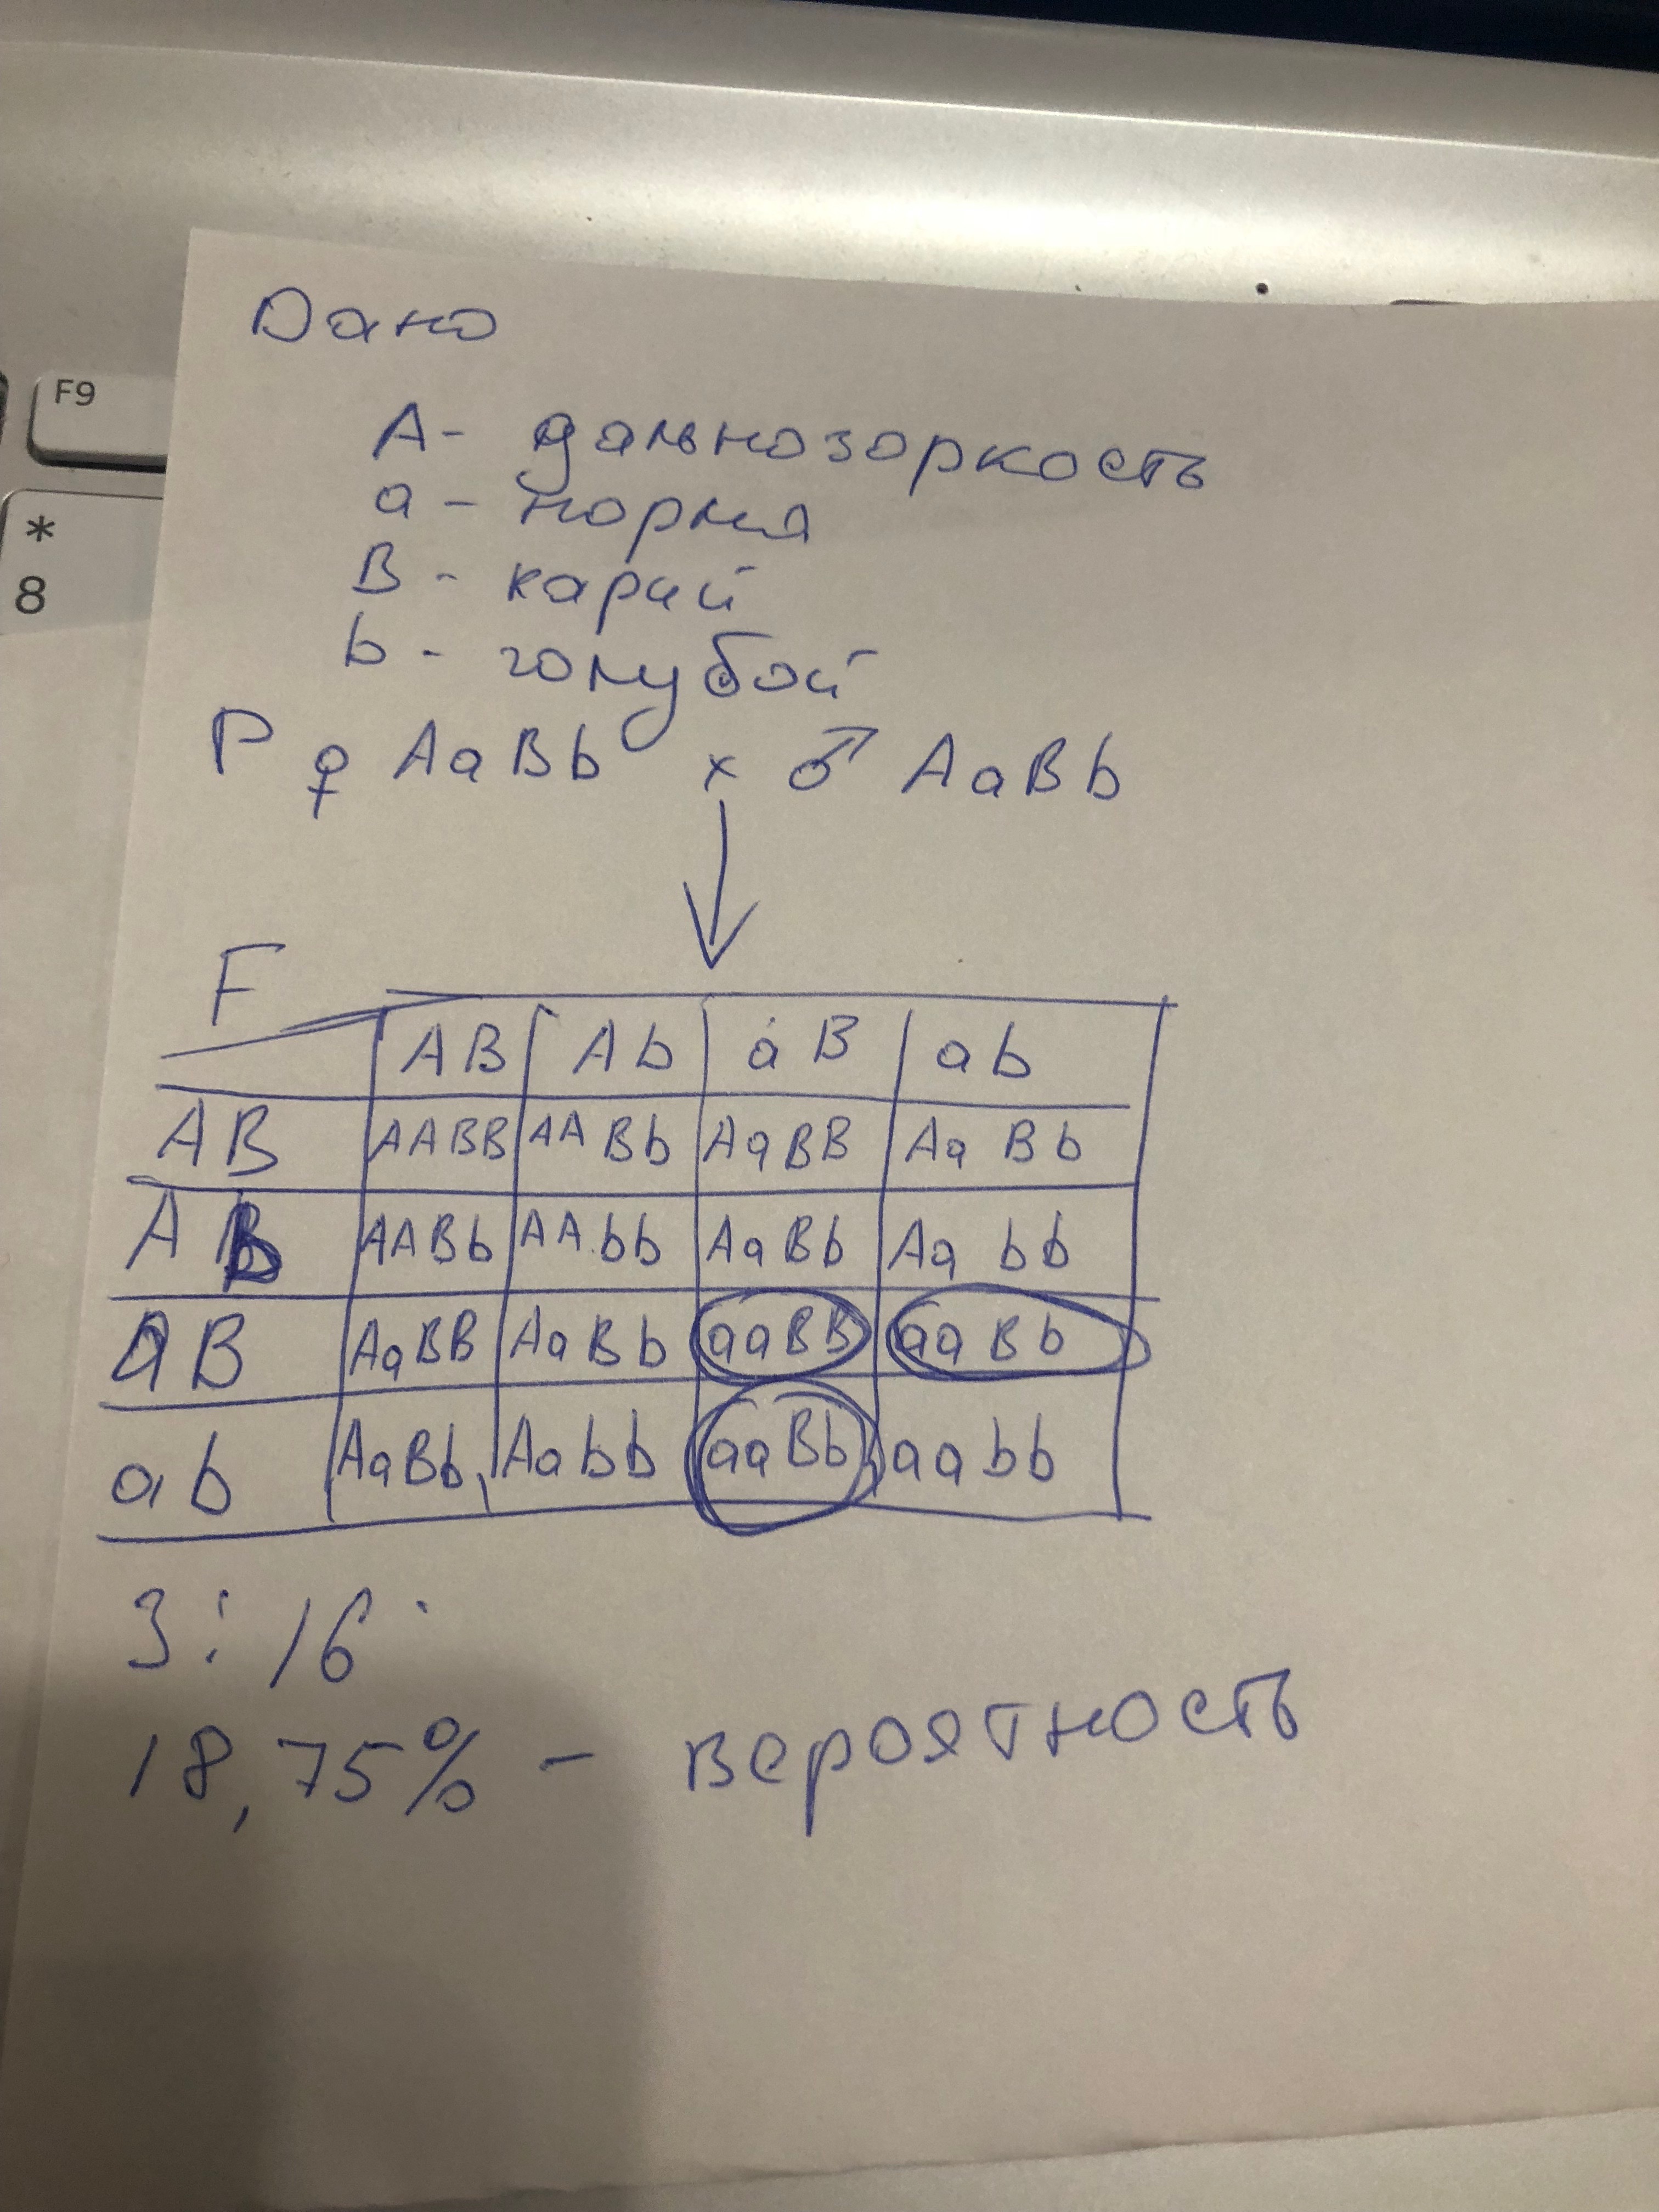 F9
*
8
Дано
А - дальнозоркость
а - норма
В - карий
b - голубой
P ♀ AaBb x ♂ AaBb
F
AB Ab aB ab
AB AABB AABb AaBB AaBb
Ab AABb AAbb AaBb Aabb
aB AaBB AaBb aaBB aaBb
ab AaBb Aabb aaBb aabb
3:16
18,75% - вероятность